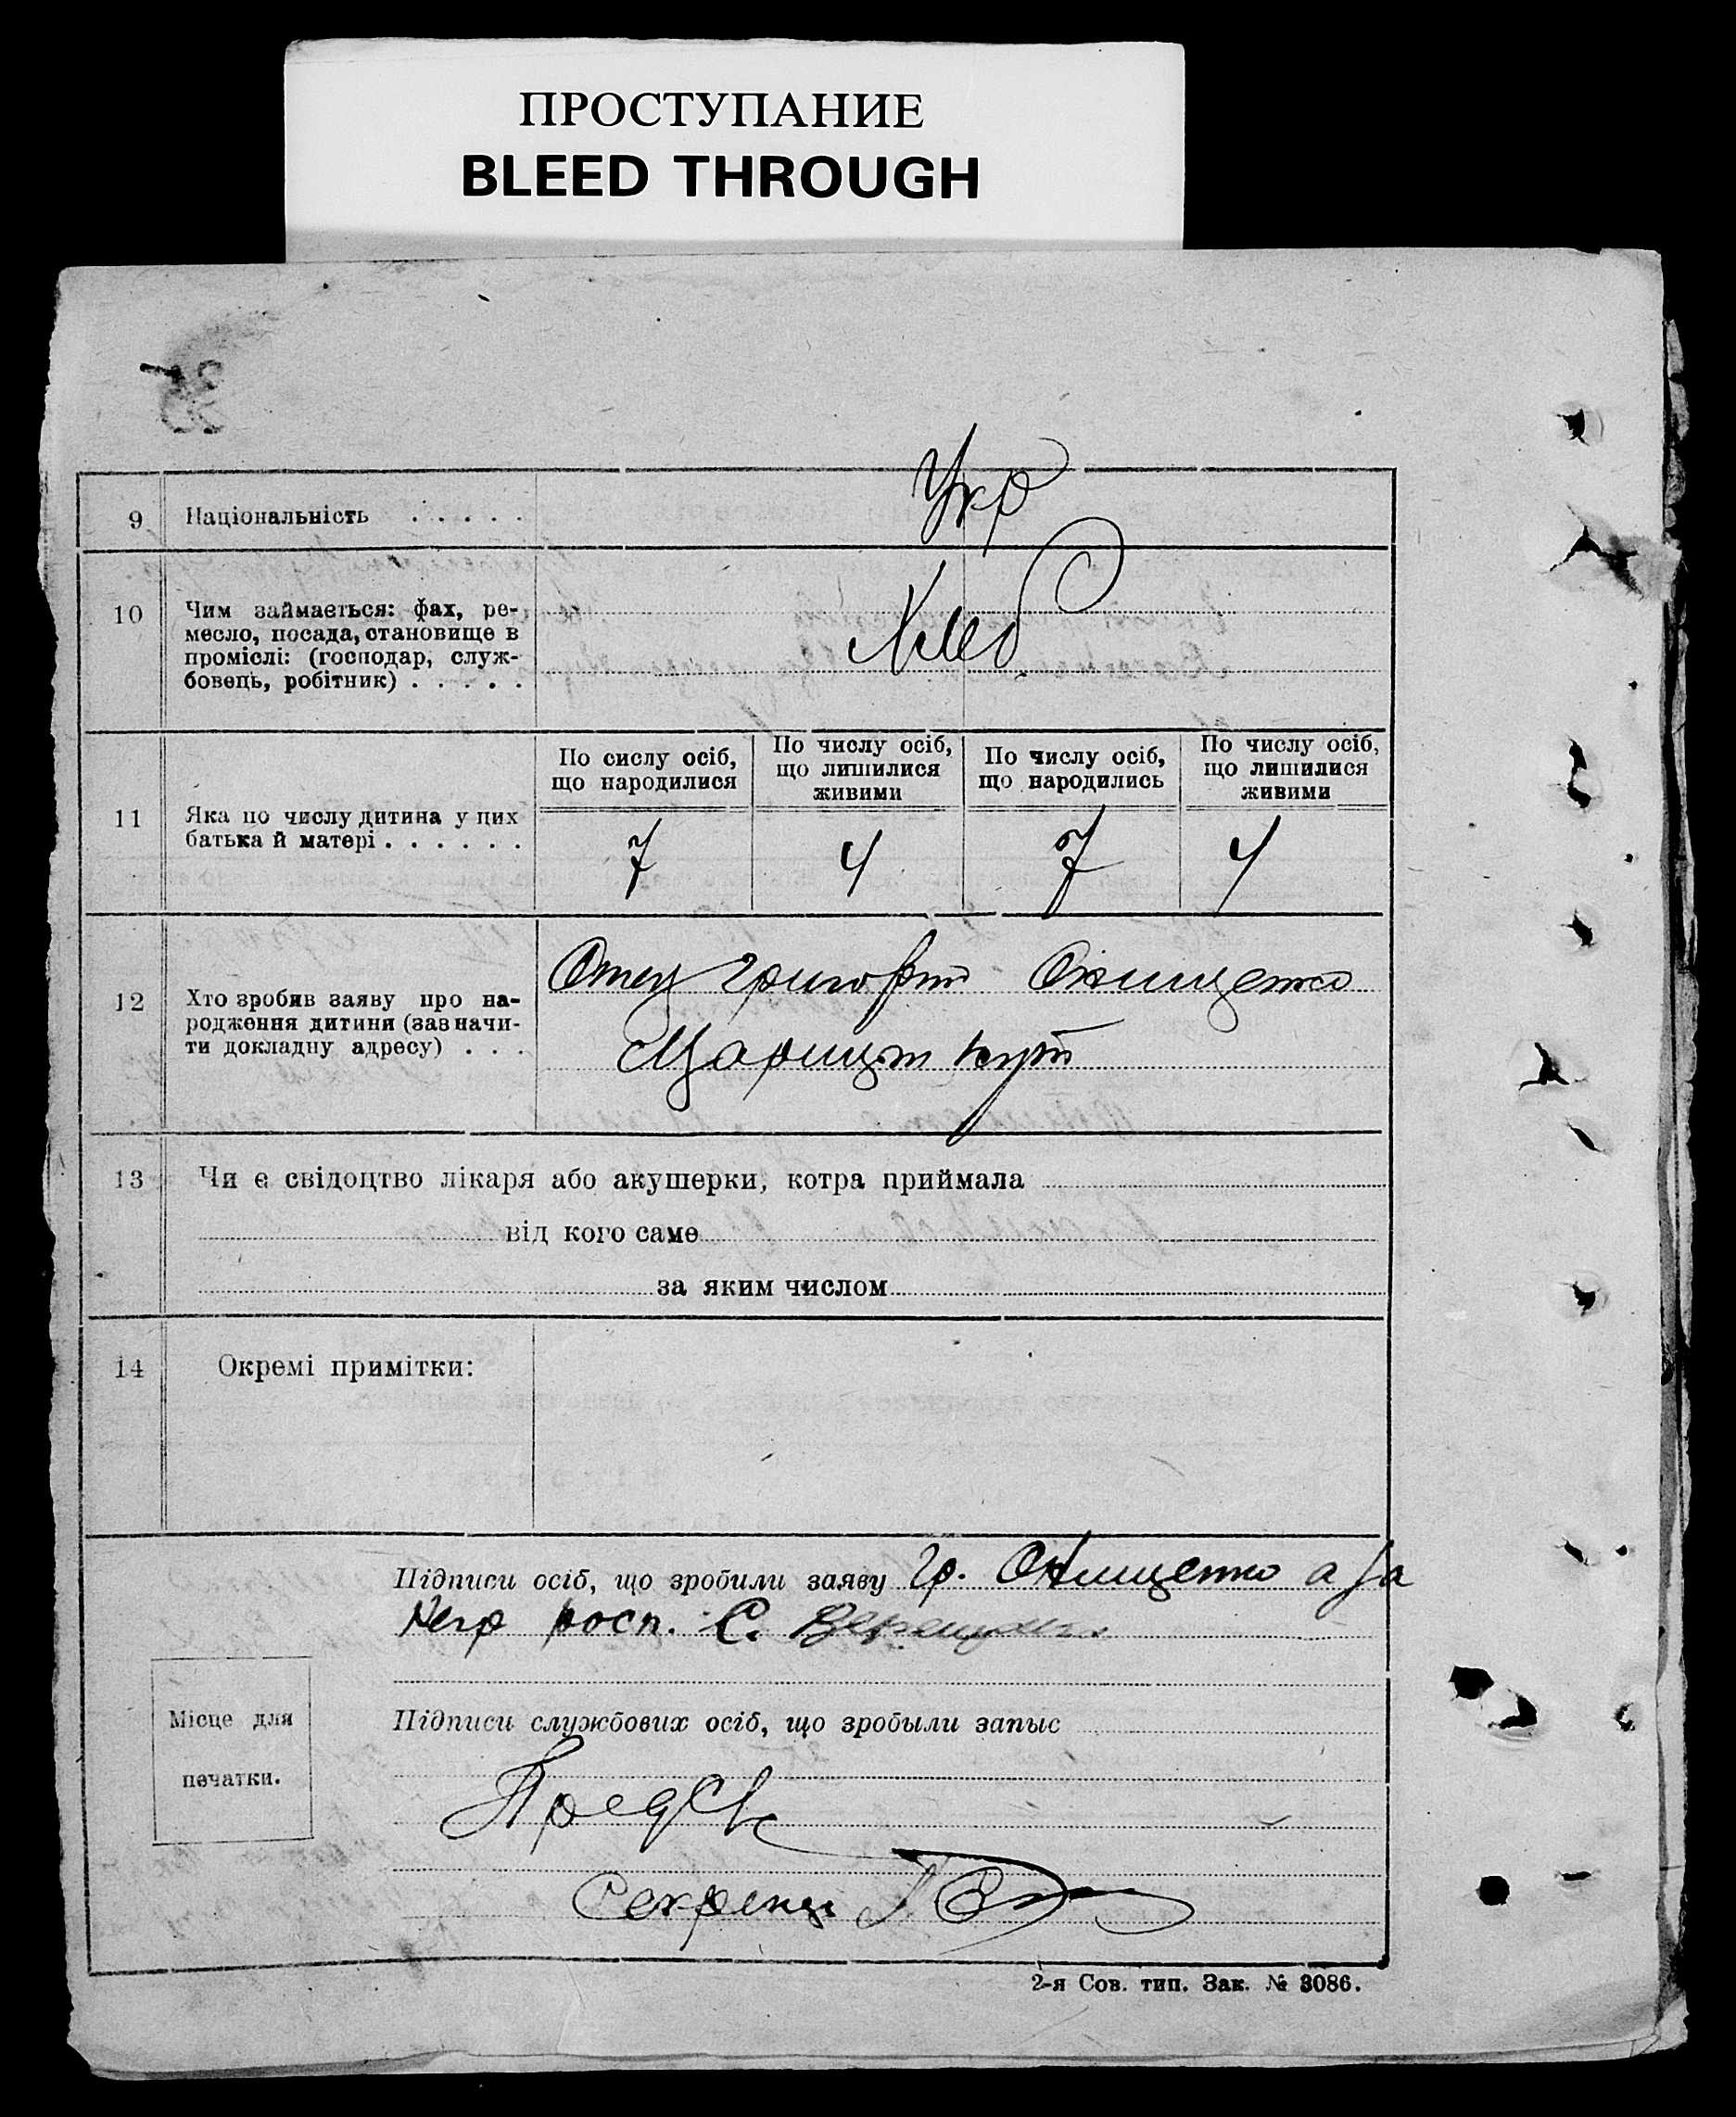 ПРОСТУПАНИЕ
BLEED THROUGH
35
9 Національність . . . . . Укр
10 Чим займається: фах, ре-
месло, посада, становище в
проміслі: (господар, служ-
бовець, робітник) . . . . . Хлеб
11 Яка по числу дитина у цих
батька й матері . . . . . .
По сислу осіб,
що народилися
По числу осіб,
що лишилися
живими
По числу осіб,
що народились
По числу осіб,
що лишилися
живими
7 4 7 4
12 Хто зробив заяву про на-
родження дитини (зазначи-
ти докладну адресу) . . .
Отец Григорій Онищенко
Царицин кут
13 Чи є свідоцтво лікаря або акушерки, котра приймала
від кого саме
за яким числом
14 Окремі примітки:
Підписи осіб, що зробили заяву Гр. Онищенко а за
Негр росп. С.
Місце для
печатки.
Підписи службових осіб, що зробыли запыс
Пред
Секретар
2-я Сов. тип. Зак. № 3086.